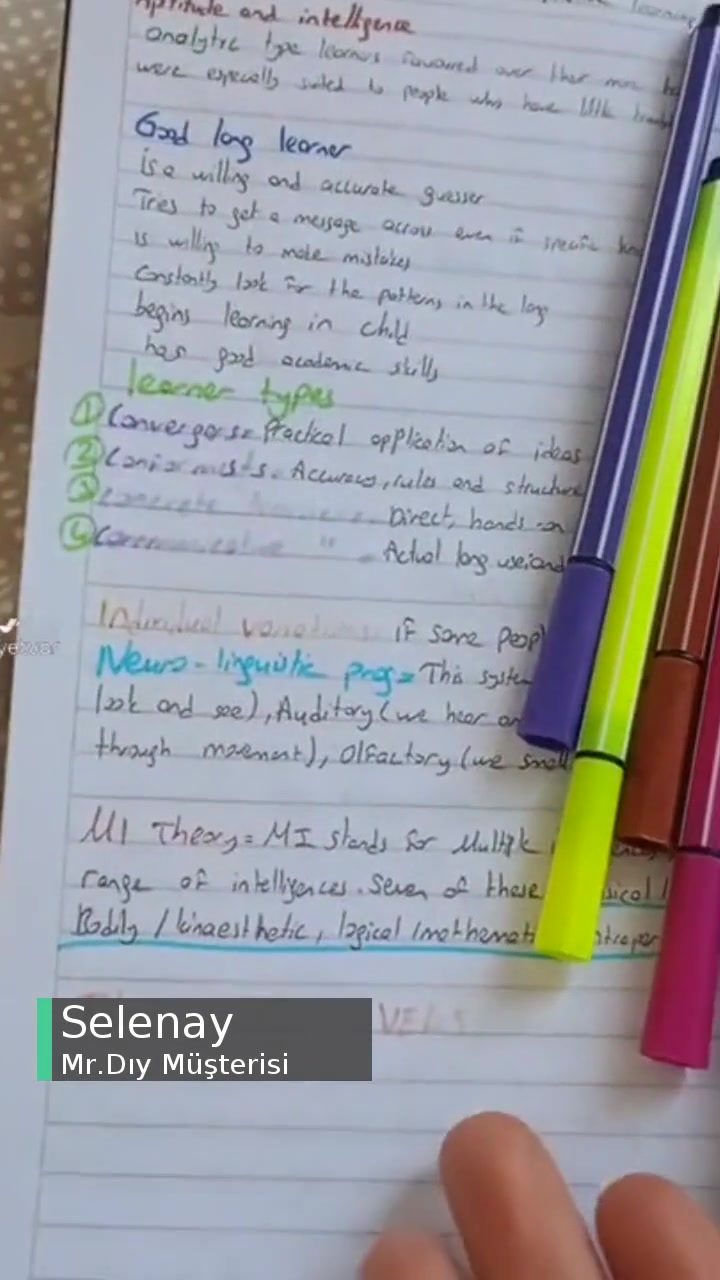 learning
Aptitude and intelligence
analytic type learners favoured over ther more
were especially suited to people who have little
Good long learner
is a willing and accurate guesser
Tries to get a message across even if specific
is willing to make mistakes
Constantly look for the patterns in the long
begins learning in child
has good academic skills
learner types
1 Convergers= Practical application of ideas
2 Conformists= Accuracy, rules and structure
3 concrete Direct, hands-on
4 Communicative " = Actual long use and
Individual variations if some peop
Neuro-linguistic prog= This system
look and see), Auditory (we hear
through movement), Olfactory (we smell
MI Theory= MI stands for Multiple
range of intelligences. Seven of these
Bodily / kinaesthetic, logical / mathemati
VELS
Selenay
Mr.Dıy Müşterisi